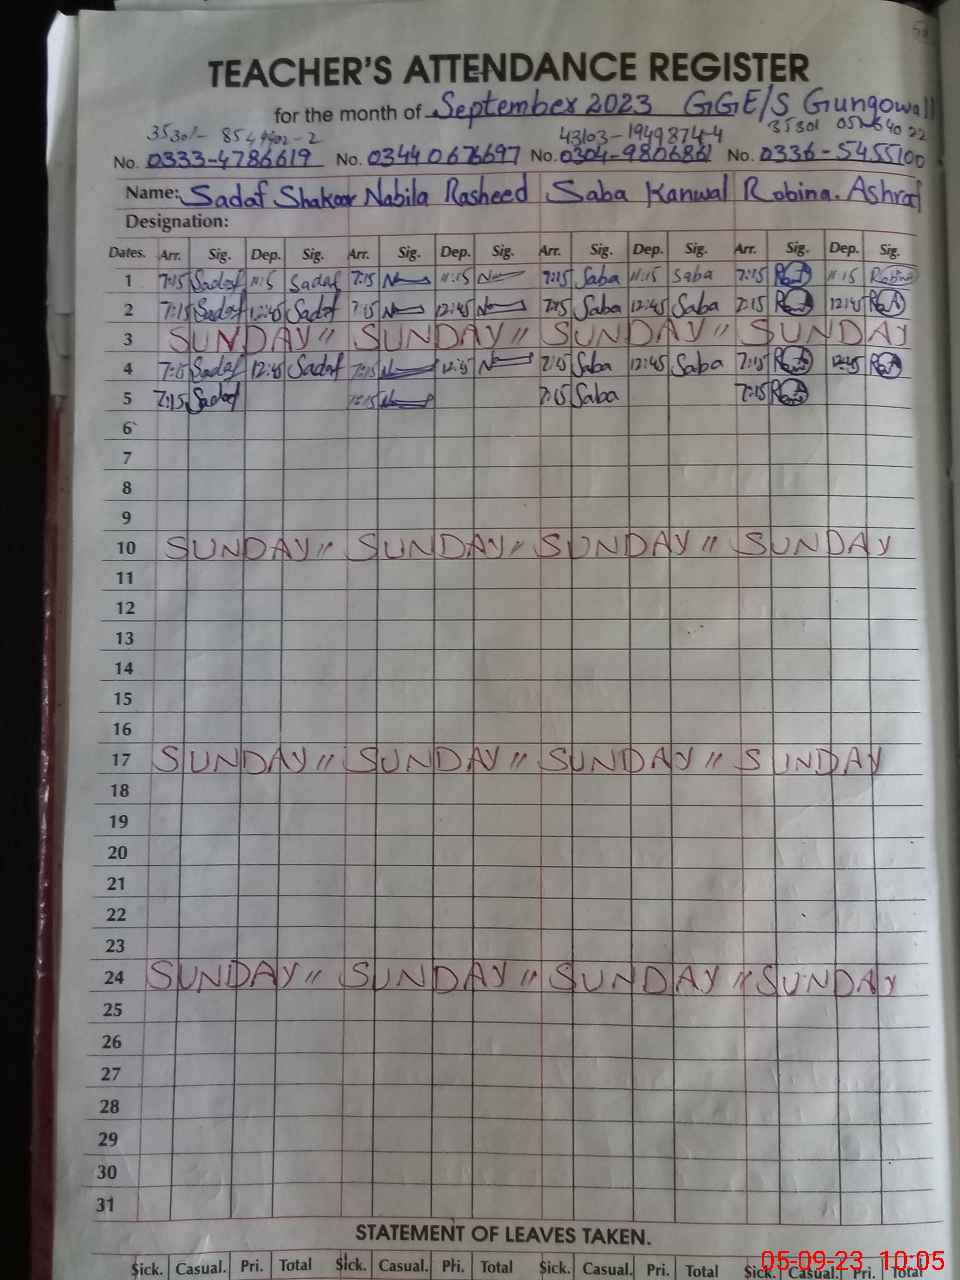 TEACHER'S ATTENDANCE REGISTER
for the month of September 2023 GGE/S Gungowall
35301- 8549402-2 43103-1949874-4 35301 0526402 2
No. 0333-4786619 No. 0344 0676697 No. 0304-9806861 No. 0336-5455100
Name: Sadaf Shakoor Nabila Rasheed Saba Kanwal Robina. Ashraf
Designation:
Dates. Arr. Sig. Dep. Sig. Arr. Sig. Dep. Sig. Arr. Sig. Dep. Sig. Arr. Sig. Dep. Sig.
1 7:15 Sadaf 11:15 Sadaf 7:15 11:15 7:15 Saba 11:15 Saba 7:15 11:15 Robina
2 7:15 Sadaf 12:45 Sadaf 7:15 12:45 7:15 Saba 12:45 Saba 7:15 12:45
3 SUNDAY // SUNDAY // SUNDAY // SUNDAY
4 7:15 Sadaf 12:45 Sadaf 7:15 12:45 7:15 Saba 12:45 Saba 7:15 12:45
5 7:15 Sadaf 7:15 7:15 Saba 7:15
6
7
8
9
10 SUNDAY // SUNDAY // SUNDAY // SUNDAY
11
12
13
14
15
16
17 SUNDAY // SUNDAY // SUNDAY // SUNDAY
18
19
20
21
22
23
24 SUNDAY // SUNDAY // SUNDAY // SUNDAY
25
26
27
28
29
30
31
STATEMENT OF LEAVES TAKEN.
Sick. Casual. Pri. Total Sick. Casual. Pri. Total Sick. Casual. Pri. Total Sick. Casual. Pri. Total
05-09-23 10:05